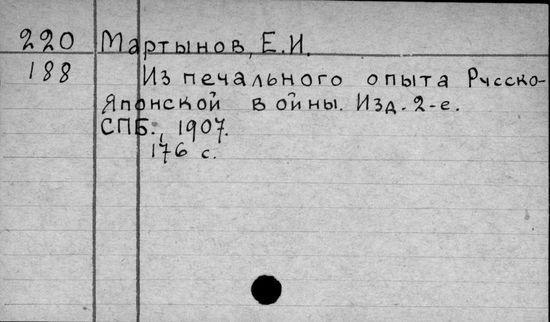 220 Мартынов, Е.И.
188 Из печального опыта Русско-
Японской войны. Изд. 2-е.
СПБ., 1907.
176 с.